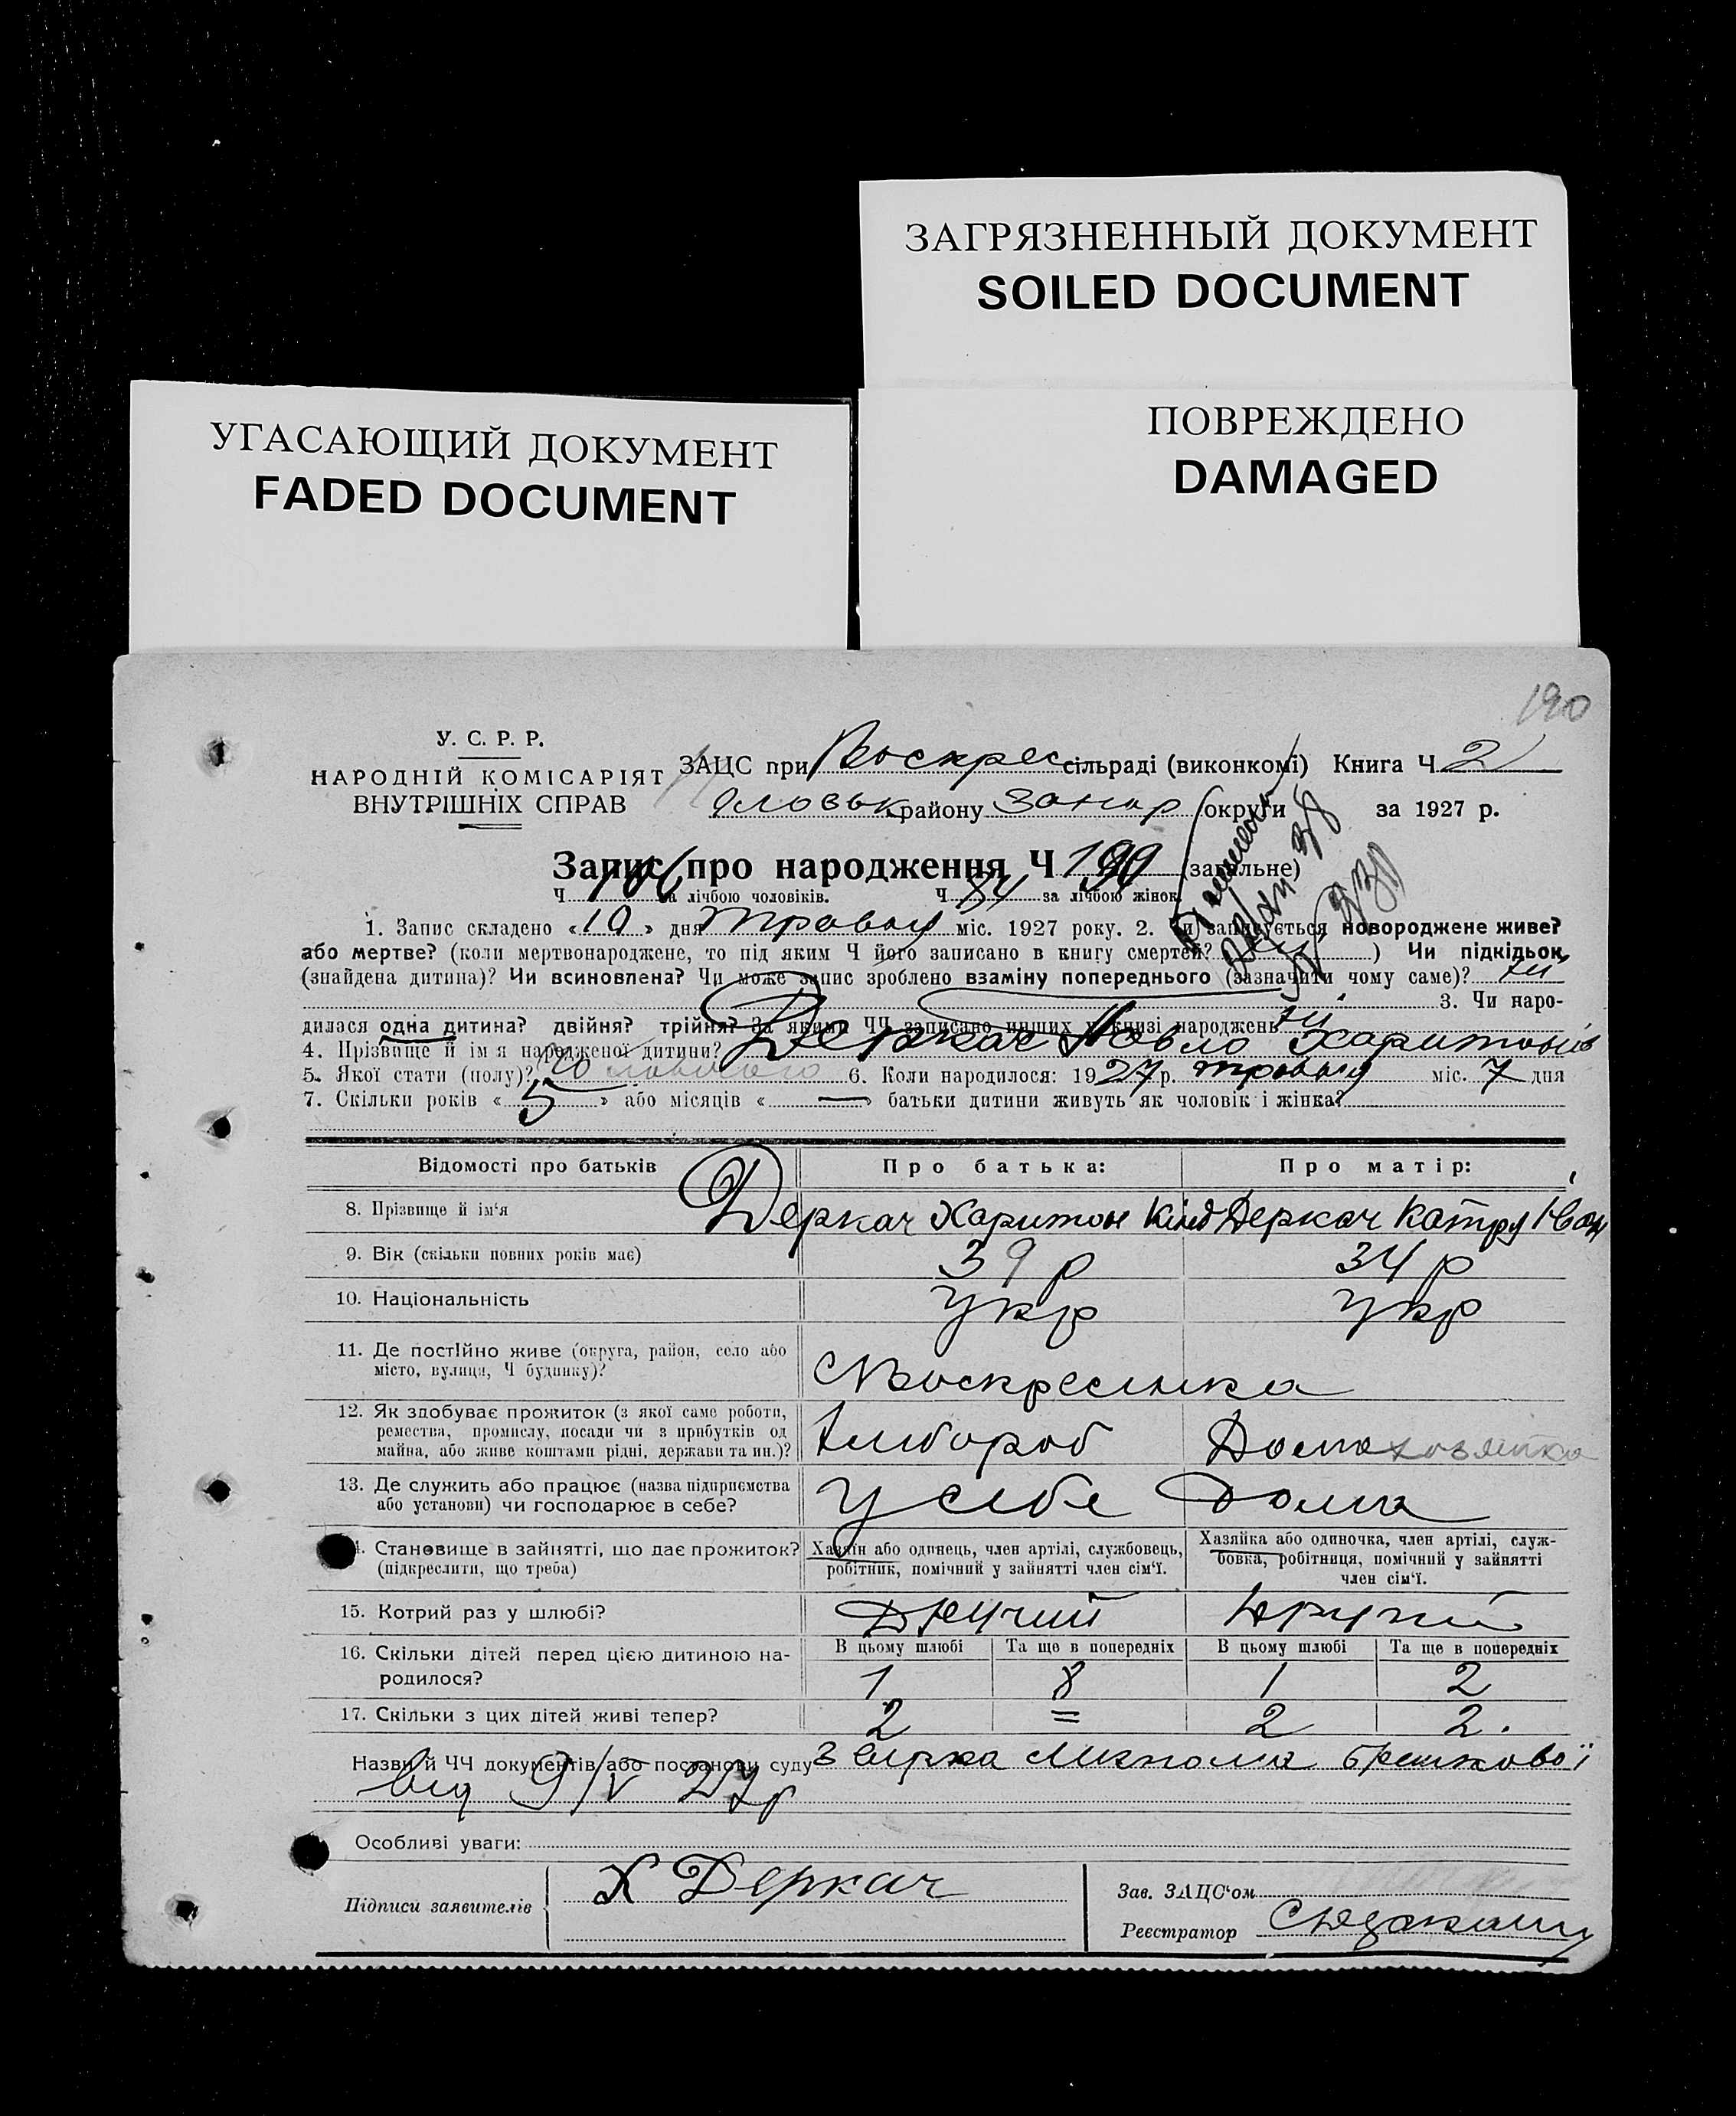 ЗАГРЯЗНЕННЫЙ ДОКУМЕНТ
SOILED DOCUMENT
УГАСАЮЩИЙ ДОКУМЕНТ
FADED DOCUMENT
ПОВРЕЖДЕНО
DAMAGED
190
У. С. Р. Р.
НАРОДНІЙ КОМІСАРІЯТ
ВНУТРІШНІХ СПРАВ
ЗАЦС при Воскрес сільраді (виконкомі) Книга Ч 2
району Запор округи за 1927 р.
Запис про народження Ч 190 (загальне)
Ч 106 за лічбою чоловіків. Ч 84 за лічбою жінок.
1. Запис складено «10» дня травня міс. 1927 року. 2. Чи записується новороджене живе?
або мертве? (коли мертвонароджене, то під яким Ч його записано в книгу смертей? ) Чи підкідьок
(знайдена дитина)? Чи всиновлена? Чи може запис зроблено взаміну попереднього (зазначити чому саме)? ні
3. Чи наро-
дилася одна дитина? двійня? трійня? За якими ЧЧ записано инших у книзі народжень ні
4. Прізвище й ім'я народженої дитини? Деркач Павло Харитонів
5. Якої стати (полу)? 6. Коли народилося: 1927 р. травня міс. 7 дня
7. Скільки років «5» або місяців «—» батьки дитини живуть як чоловік і жінка?
Відомості про батьків Про батька: Про матір:
8. Прізвище й ім'я Деркач Харитон Деркач Катря Іван
9. Вік (скільки повних років має) 39 р 34 р
10. Національність Укр Укр
11. Де постійно живе (округа, район, село або
місто, вулиця, Ч будинку)? с Воскресенка
12. Як здобуває прожиток (з якої саме роботи,
ремества, промислу, посади чи з прибутків од
майна, або живе коштами рідні, держави та ин.)? Хлібороб Домохозяйка
13. Де служить або працює (назва підприємства
або установи) чи господарює в себе? У себе Дома
Становище в зайнятті, що дає прожиток?
(підкреслити, що треба)
Хазяїн або одинець, член артілі, службовець,
робітник, помічний у зайнятті член сім'ї.
Хазяйка або одиночка, член артілі, служ-
бовка, робітниця, помічний у зайнятті
член сім'ї.
15. Котрий раз у шлюбі? Другий Другий
16. Скільки дітей перед цією дитиною на-
родилося?
В цьому шлюбі Та ще в попередніх В цьому шлюбі Та ще в попередніх
1 8 1 2
17. Скільки з цих дітей живі тепер? 2 = 2 2.
Назви й ЧЧ документів або постанови суду
від 9/V 27р
Особливі уваги:
Підписи заявителів Х Деркач
Зав. ЗАЦС'ом
Реєстратор